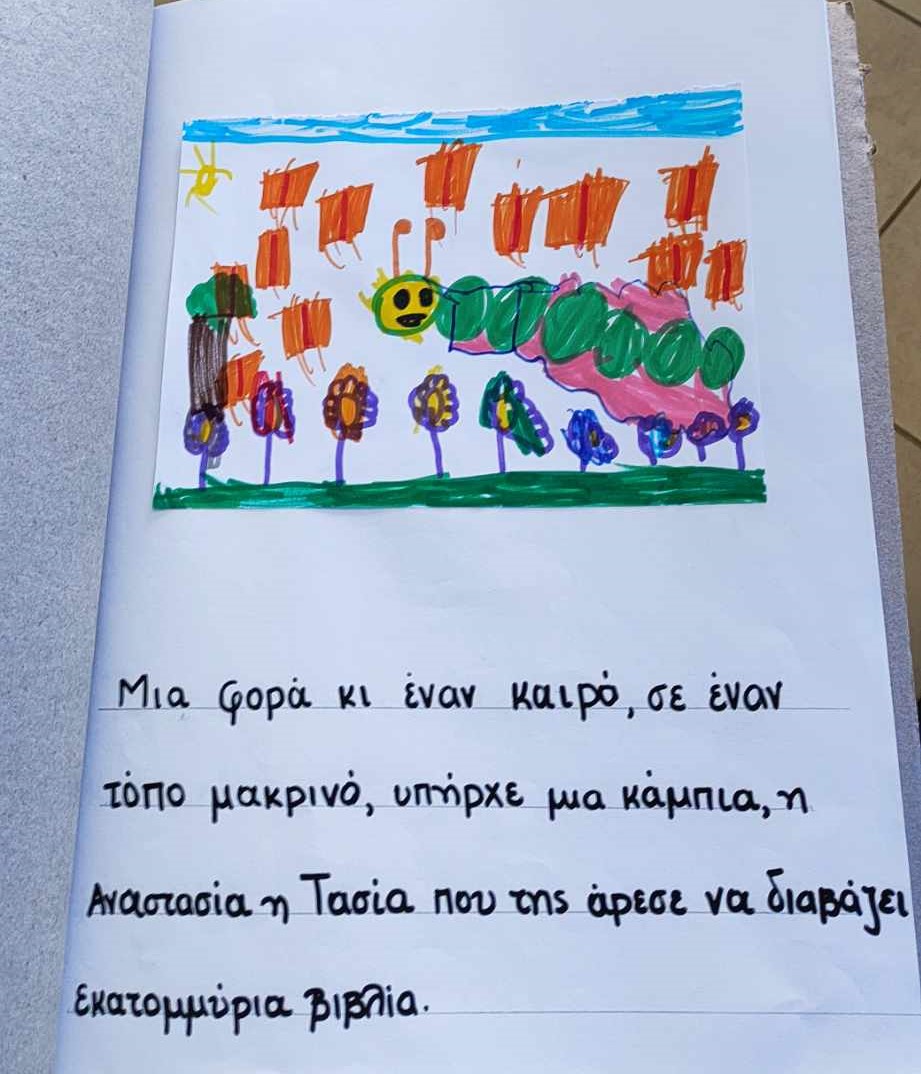 Μια φορά κι έναν καιρό, σε έναν
τόπο μακρινό, υπήρχε μια κάμπια, η
Αναστασία η Τασία που της άρεσε να διαβάζει
εκατομμύρια βιβλία.